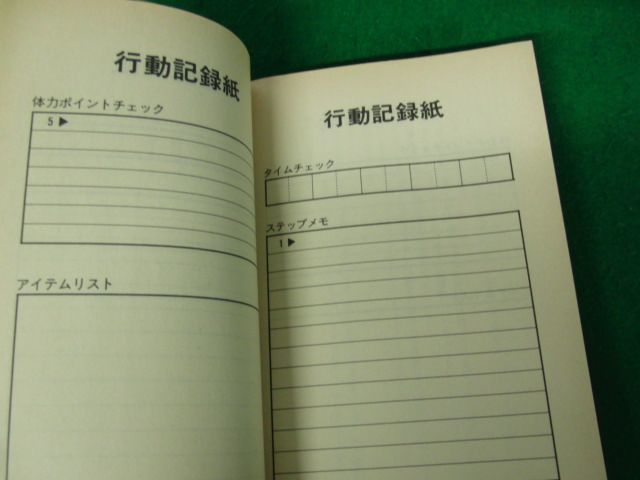 行動記録紙
体力ポイントチェック
5▶
アイテムリスト
行動記録紙
タイムチェック
ステップメモ
1▶